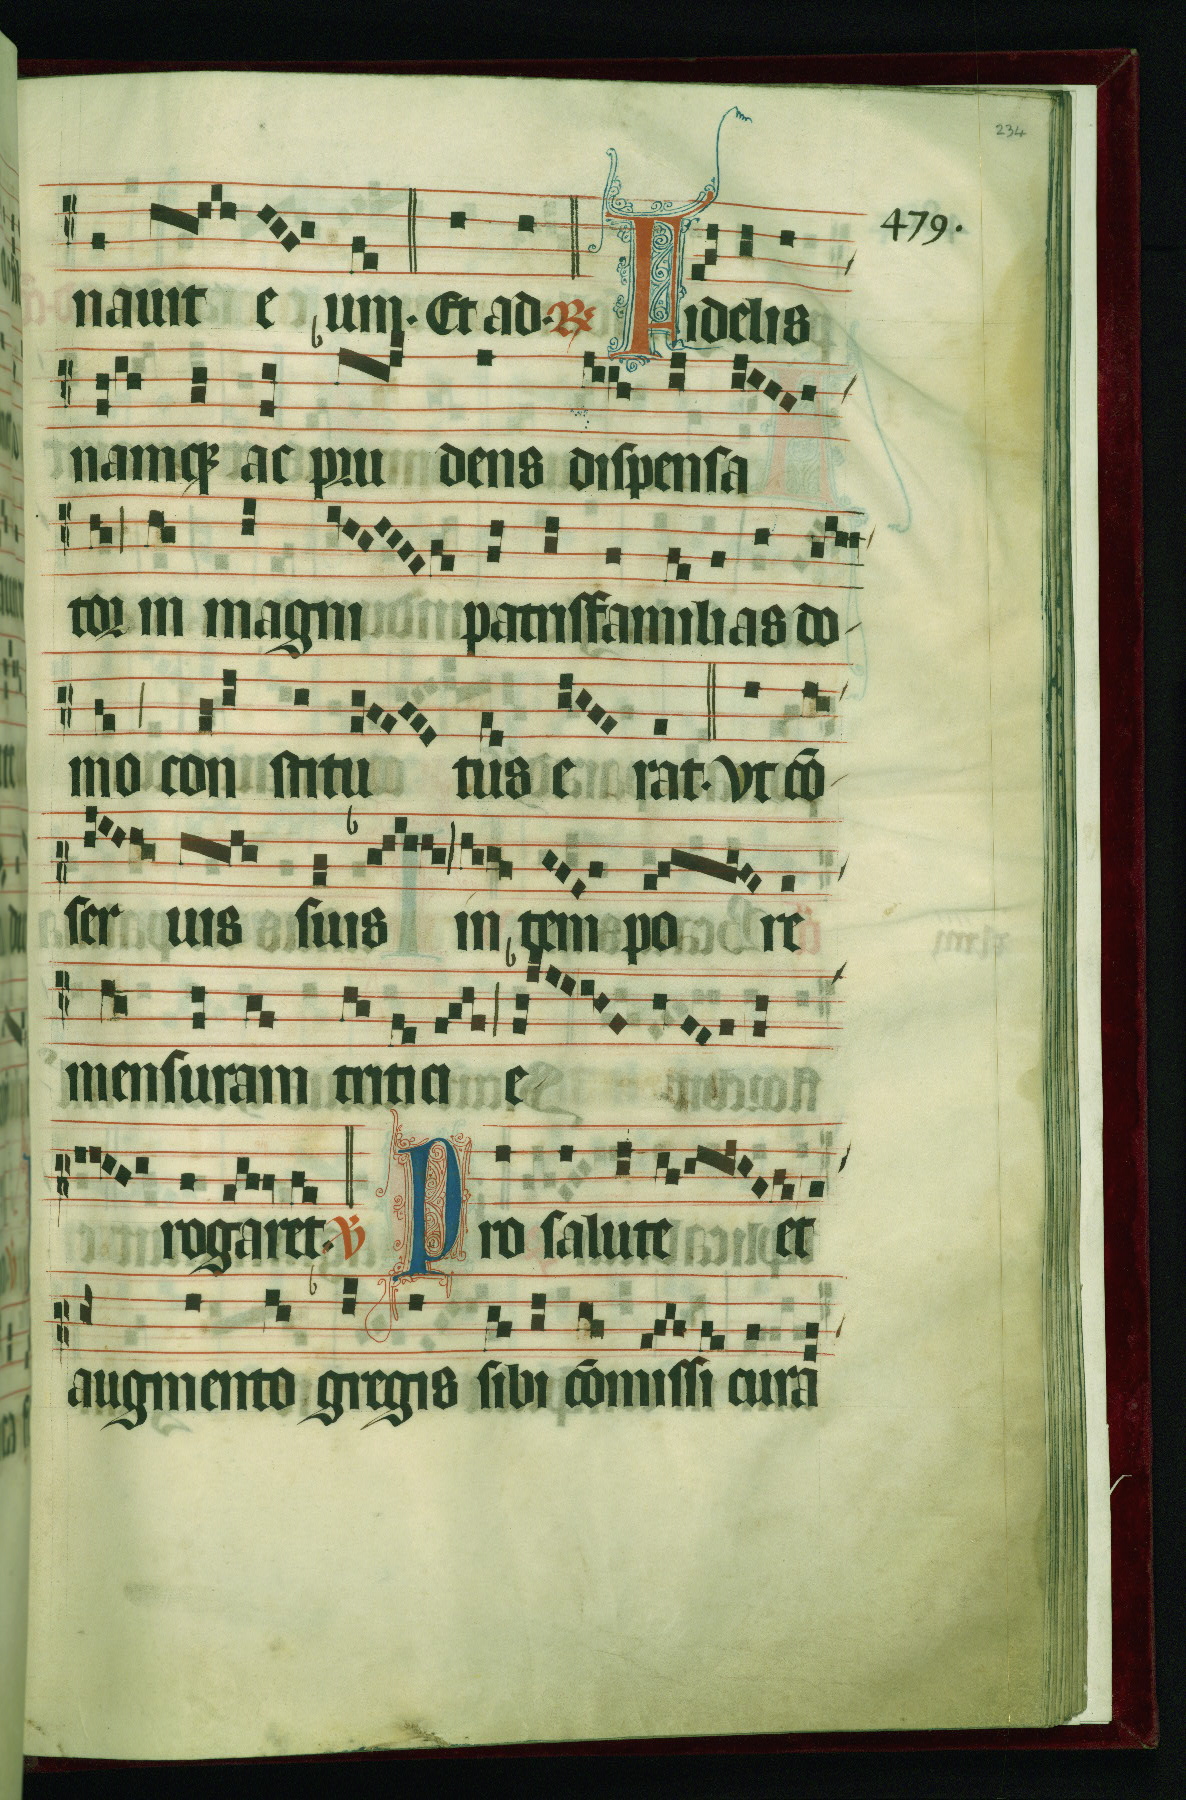 234
479.
nauit e um. Et ad. R Fidelis
namqz ac pru dens dispensa
tor in magni patrisfamilias do
mo con stitu tus e rat. Vt cō
ser uis suis in tempo re
mensuram tritici e
rogaret. V Pro salute et
augmento gregis sibi cōmissi cura